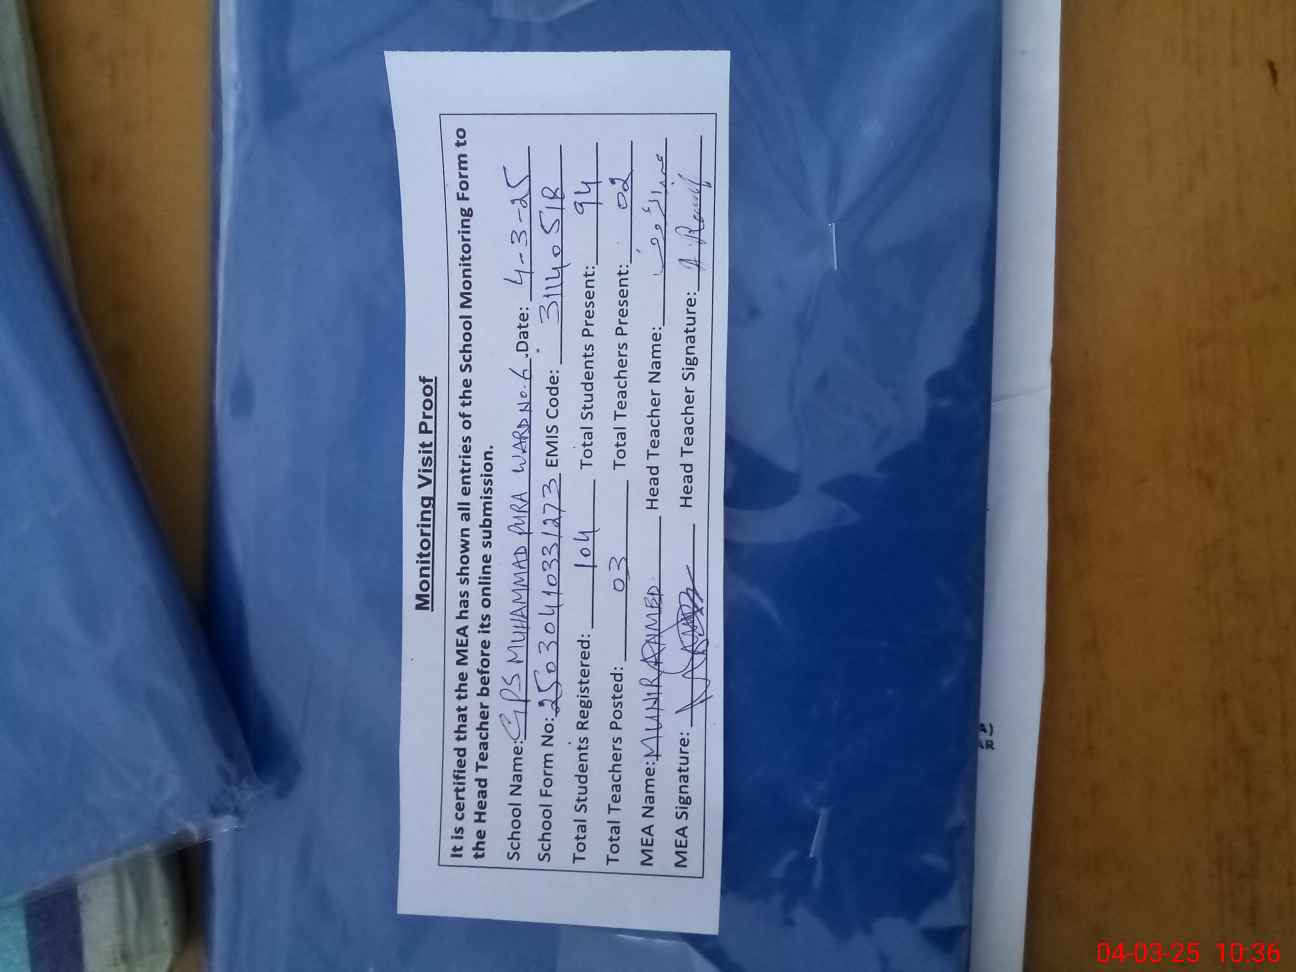 Monitoring Visit Proof
It is certified that the MEA has shown all entries of the School Monitoring Form to
the Head Teacher before its online submission.
School Name: GPS MUHAMMAD PURA WARD No. 6 .Date: 4-3-25
School Form No: 25030410331273 EMIS Code: 31140518
Total Students Registered: 104 Total Students Present: 94
Total Teachers Posted: 03 Total Teachers Present: 02
MEA Name: MUNIR AHMED. Head Teacher Name:
MEA Signature: Head Teacher Signature:
A)
AR
04-03-25 10:36